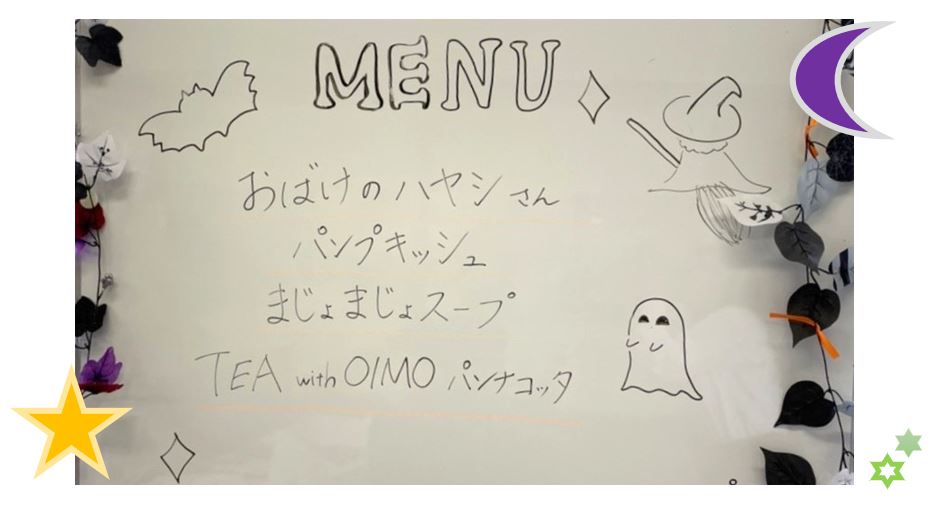 MENU
おばけのハヤシさん
パンプキッシュ
まじょまじょスープ
TEA with OIMO パンナコッタ